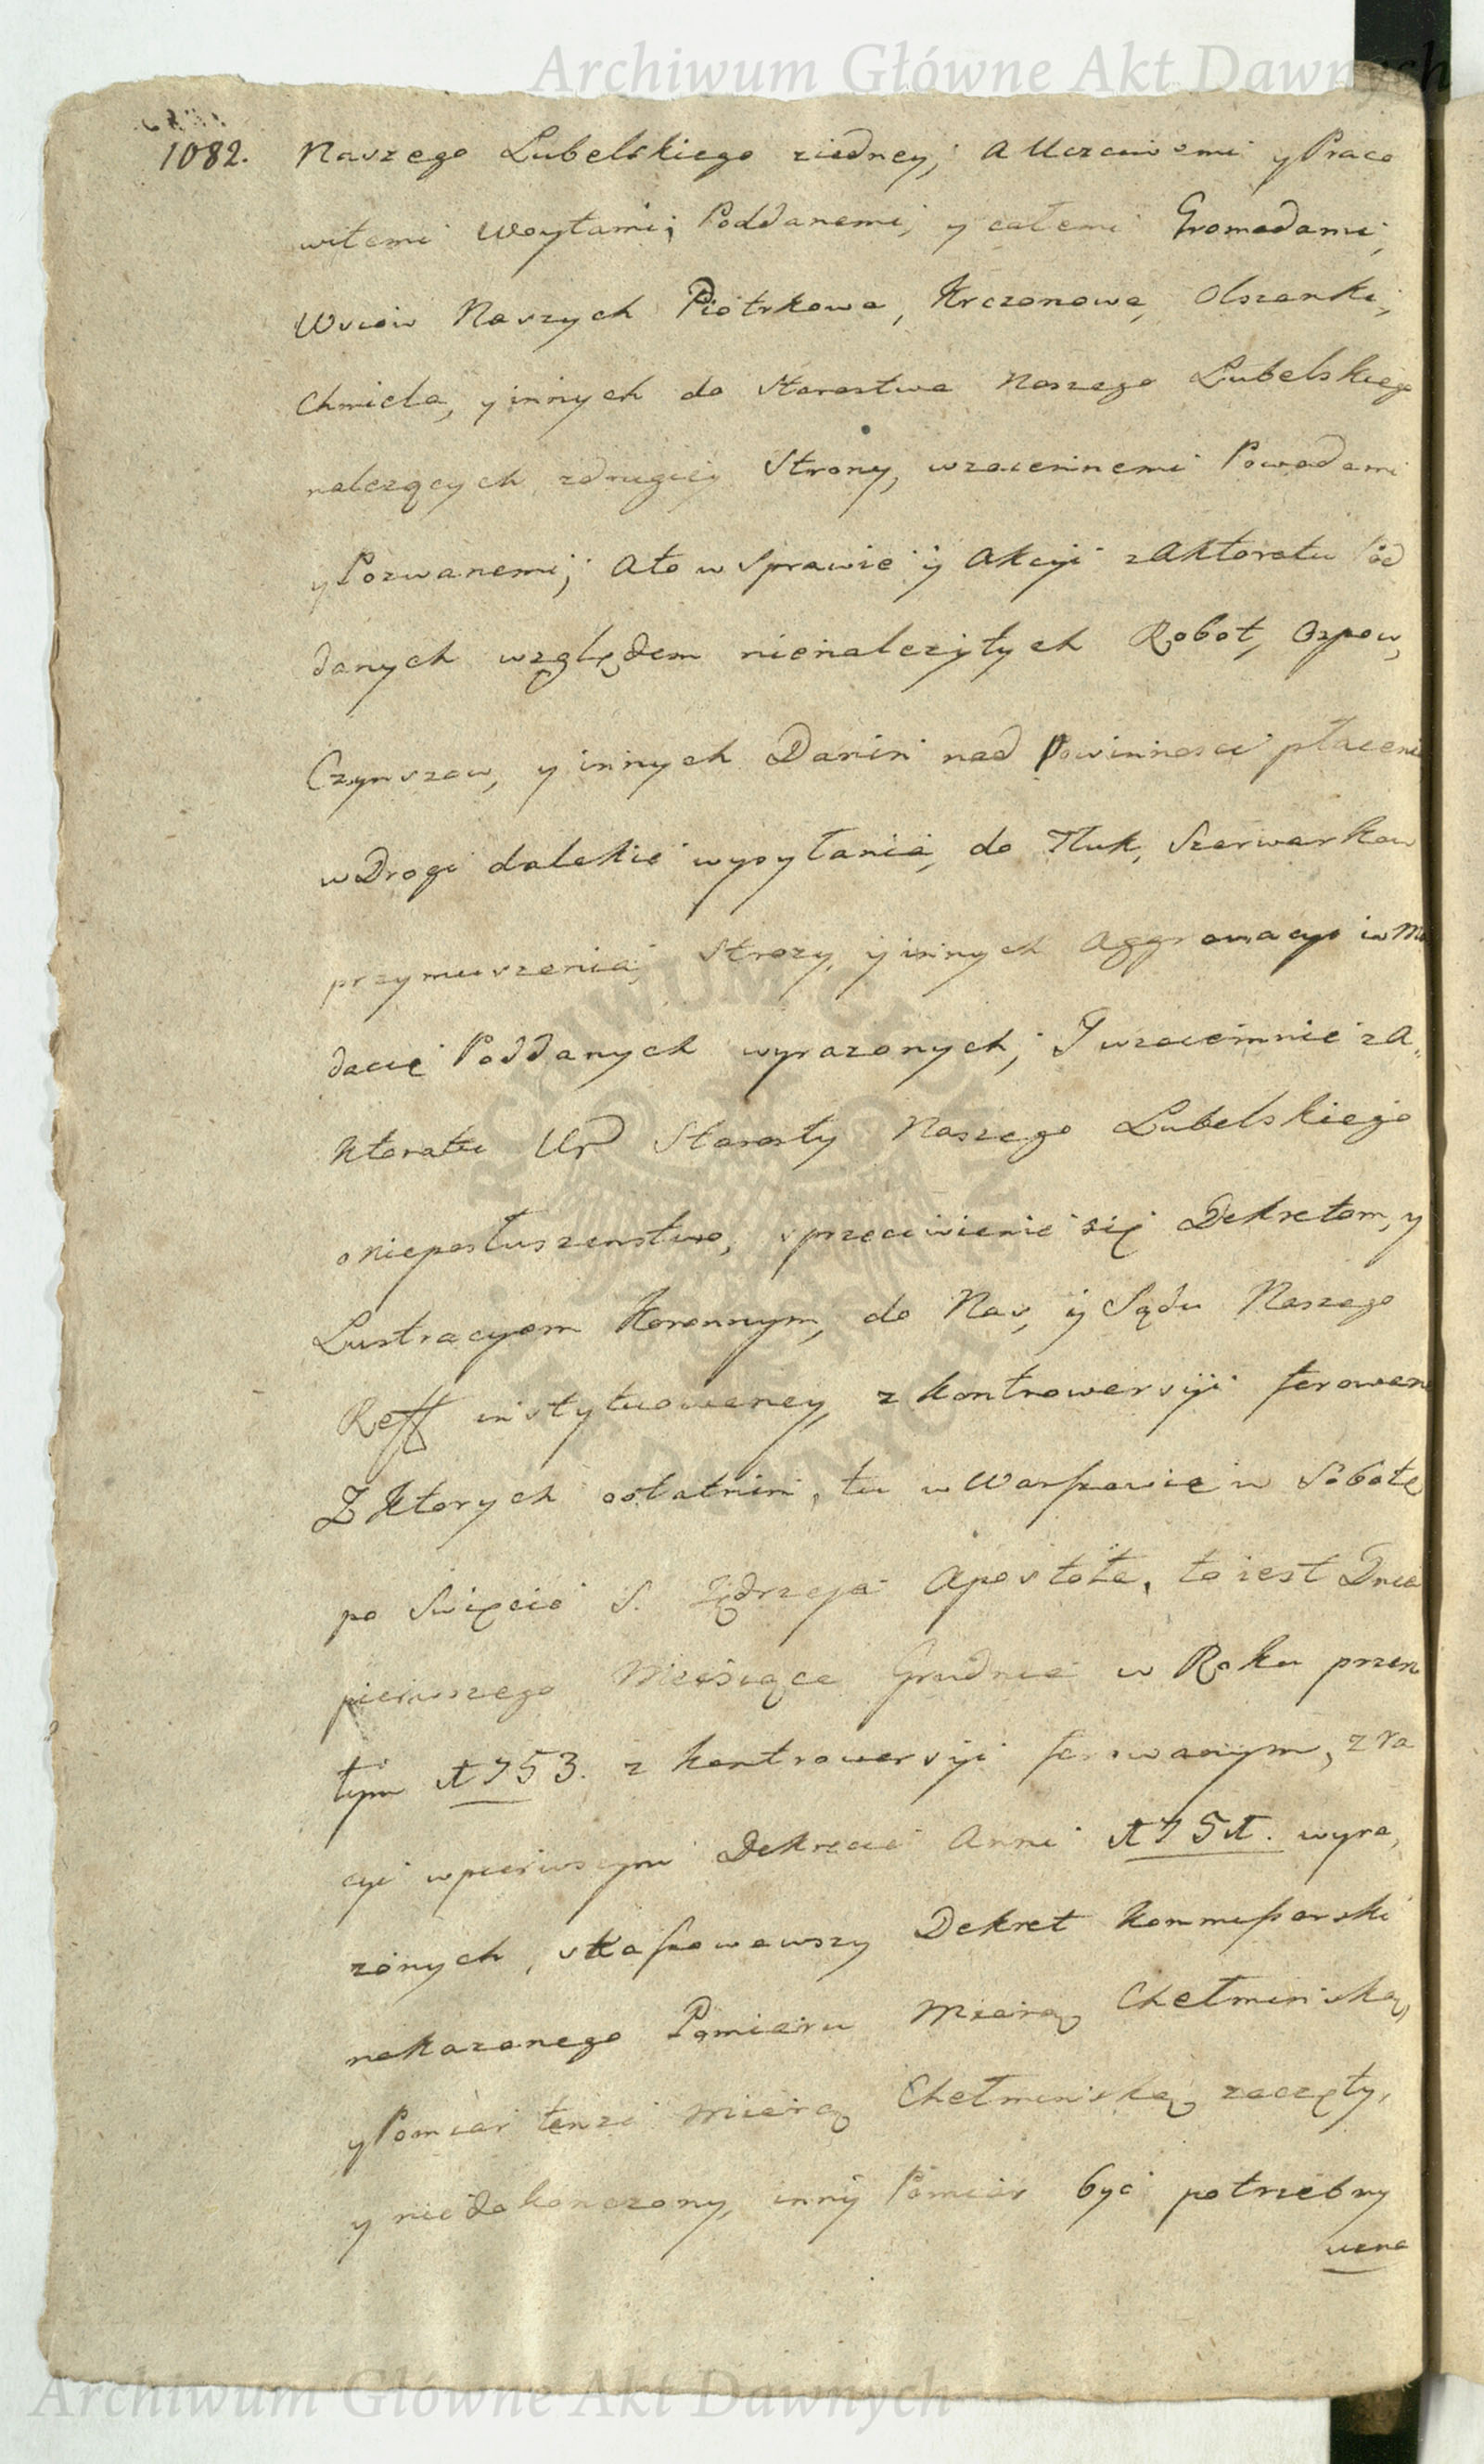 Archiwum Główne Akt Dawnych
1082. Naszego Lubelskiego ziedney; A Uczciwemi y Praco
witemi Woytami; Poddanemi, y całemi Gromadami,
Wsiow Naszych Piotrkowa, Krczonowa, Olszanki,
Chmiela, y innych do Starostwa Naszego Lubelskiego
należących zdrugiey Strony, wzaiemnemi Powodami
y Pozwanemi; Ato w Sprawie y Akcyi zAktoratu Pod
danych względem nienależytych Robot, Ospow,
Czynszow, y innych Danin nad Powinnosci płacenia
w Drogi dalekie wysyłania, do Tłuk, Szarwarkow
przymuszenia, Strozy, y innych Aggrawacyi w Man
dacie Poddanych wyrazonych; J wzaiemnie zA,,
ktoratu Ur Starosty Naszego Lubelskiego
o nieposłuszenstwo, sprzeciwienie się Dekretom, y
Lustracyom Koronnym, do Nas, y Sądu Naszego
Reff instytuowaney, z kontrowersyi ferowane
Z Ktorych ostatnim, tu w Warszawie w Sobotę
po Swięcie S. Jędrzeja Apostoła, to iest Dnia
pierwszego Miesiąca Grudnia w Roku przesz
łym 1753. z kontrowersyi ferowanym, z ra
cyi wpierwszym Dekrecie Anni 1751. wyra,
zonych, skassowawszy Dekret Kommissarski
nakazanego Pomiaru Miarą Chełminską,
y Pomiar tenże Miarą Chełminską zaczęty,
y niedokonczony, inny Pomiar być potrzebny
uzna
Archiwum Główne Akt Dawnych